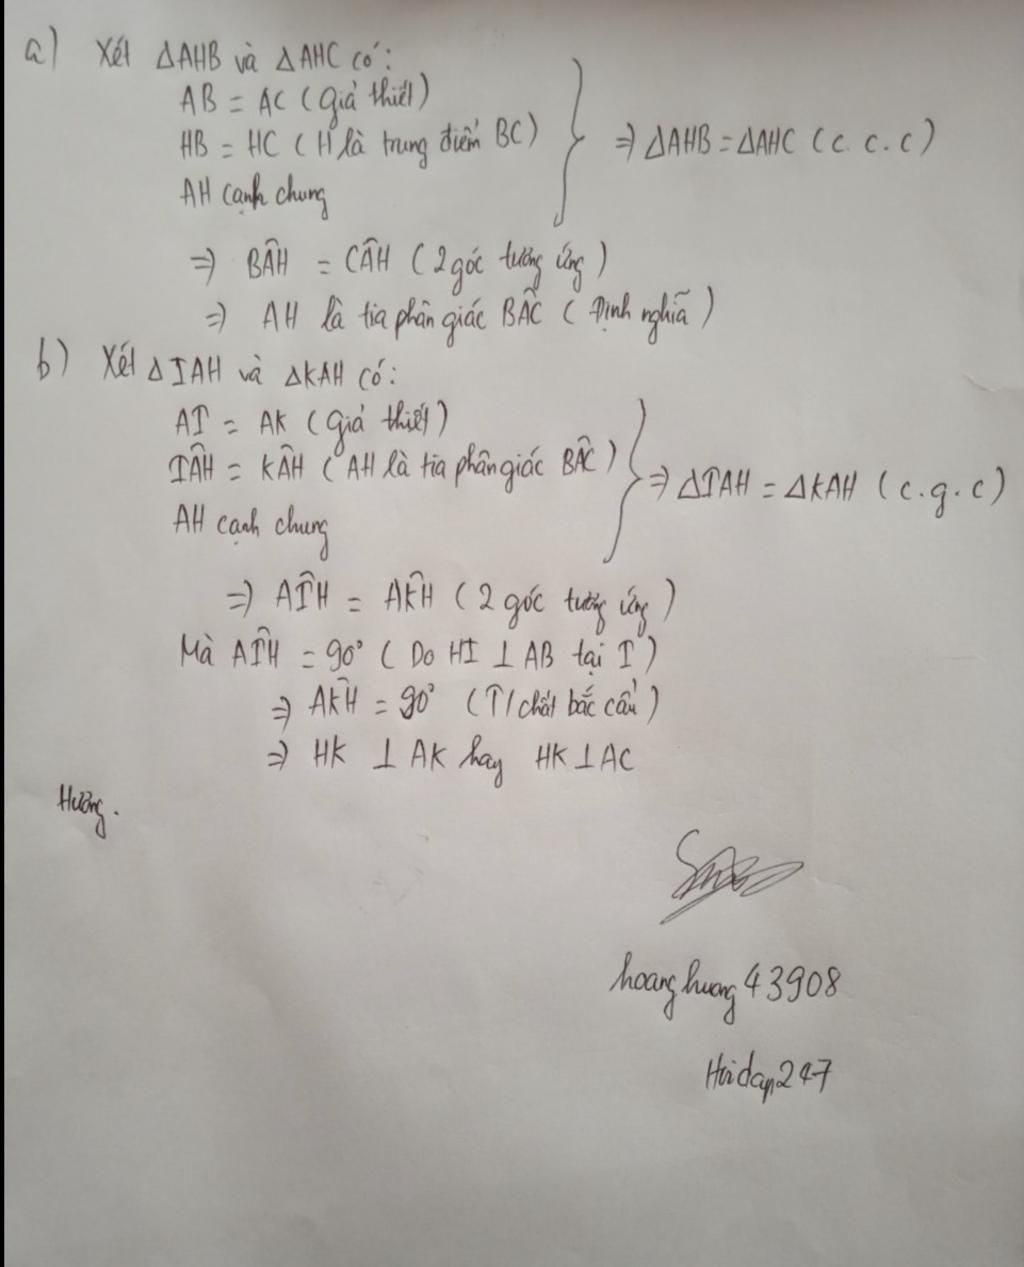 a) Xét ΔAHB và ΔAHC có:
AB = AC (giả thiết)
HB = HC (H là trung điểm BC)
AH cạnh chung
⇒ ΔAHB = ΔAHC (c.c.c)
⇒ BÂH = CÂH (2 góc tương ứng)
⇒ AH là tia phân giác BÂC (Định nghĩa)
b) Xét ΔIAH và ΔKAH có:
AI = AK (giả thiết)
IÂH = KÂH (AH là tia phân giác BÂC)
AH cạnh chung
⇒ ΔIAH = ΔKAH (c.g.c)
⇒ AÎH = AK̂H (2 góc tương ứng)
Mà AÎH = 90° (Do HI ⊥ AB tại I)
⇒ AK̂H = 90° (T/chất bắc cầu)
⇒ HK ⊥ AK hay HK ⊥ AC
Hương.
hoanghuong43908
Hoidap247